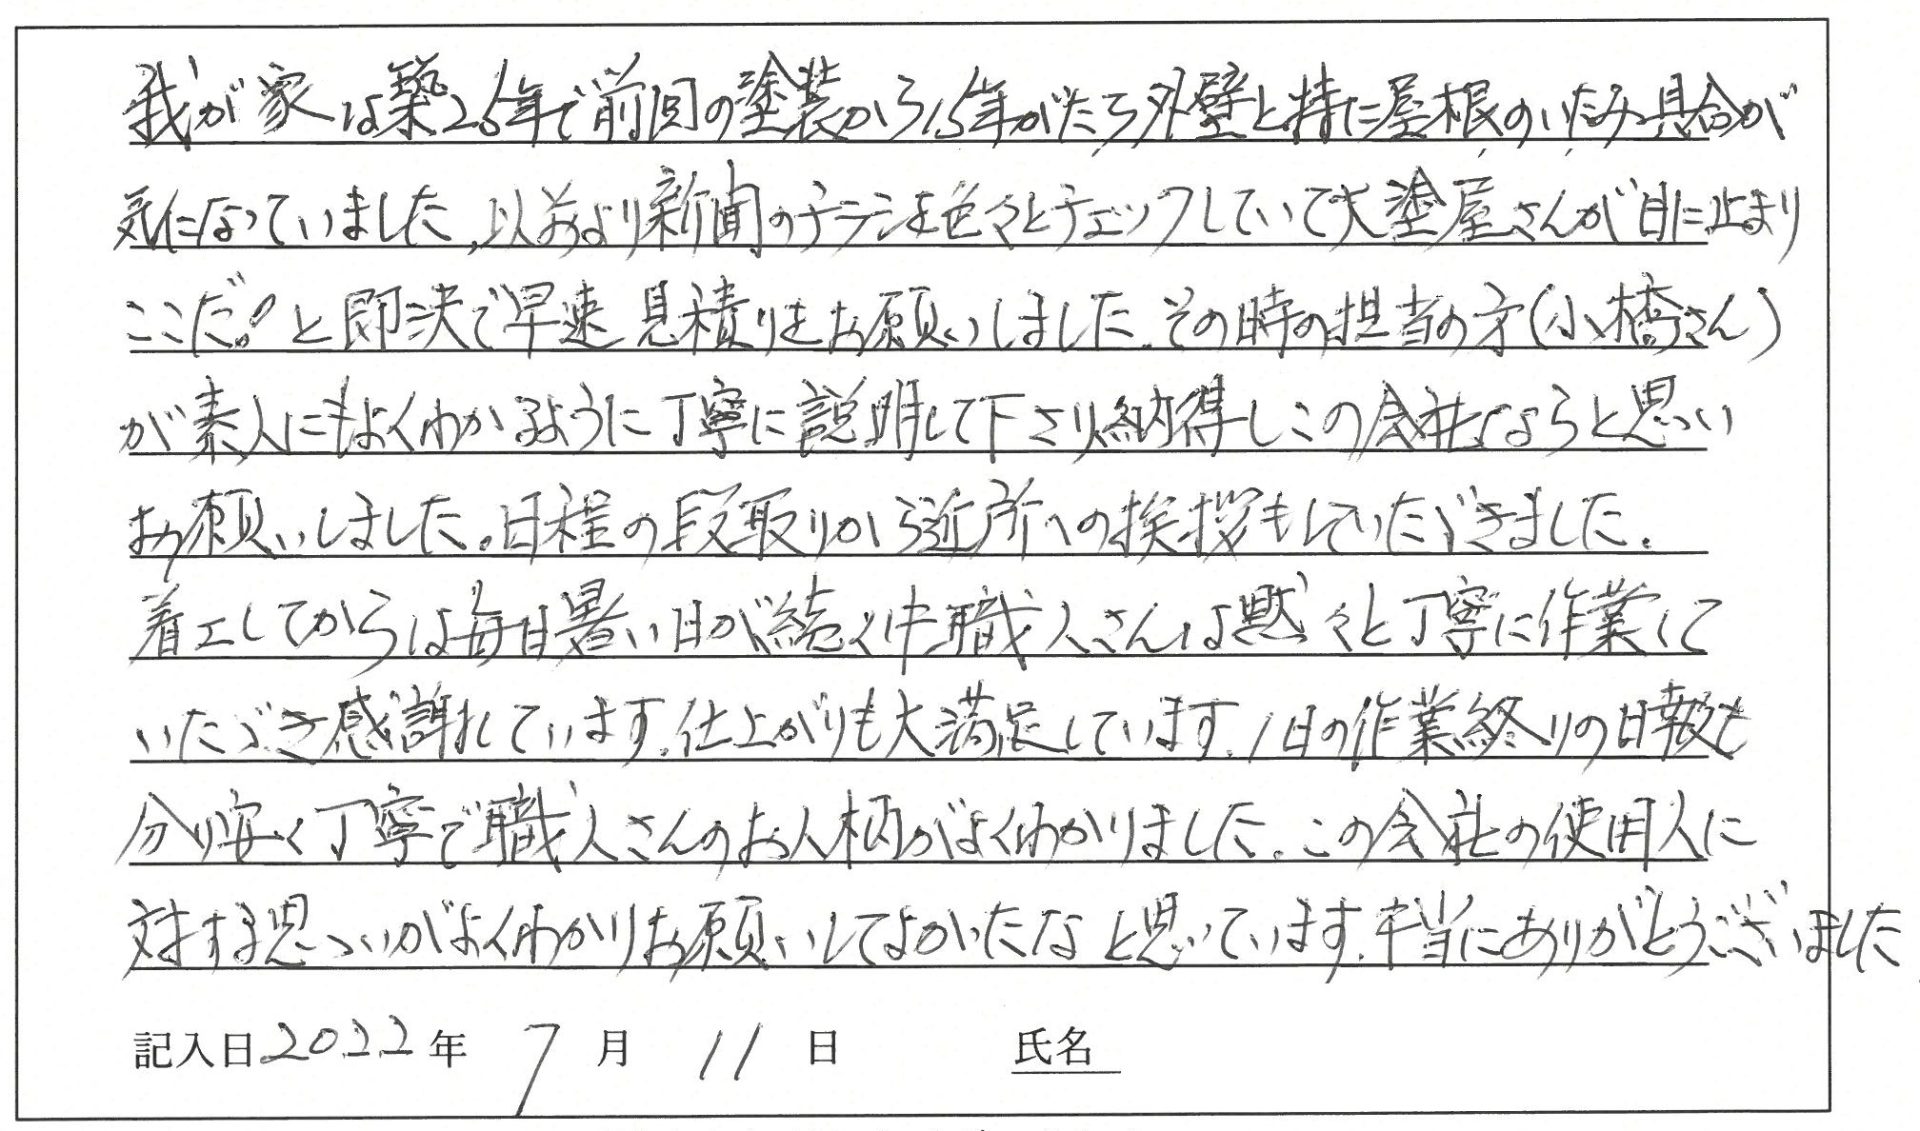 我が家は築25年で前回の塗装から15年がたち外壁と特に屋根のいたみ具合が
気になっていました。以前より新聞のチラシを色々とチェックしていて大塗屋さんが目に止まり
ここだ!と即決で早速見積りをお願いしました。その時の担当の方(小橋さん)
が素人にもよくわかるように丁寧に説明して下さり納得しこの会社ならと思い
お願いしました。日程の段取りから近所への挨拶もしていただきました。
着工してからは毎日暑い日が続く中職人さんは黙々と丁寧に作業して
いただき感謝しています。仕上がりも大満足しています。1日の作業終りの日報も
分り安く丁寧で職人さんのお人柄がよくわかりました。この会社の使用人に
対する思いがよくわかりお願いしてよかったなと思っています。本当にありがとうございました
記入日2022年 7月 11日 氏名